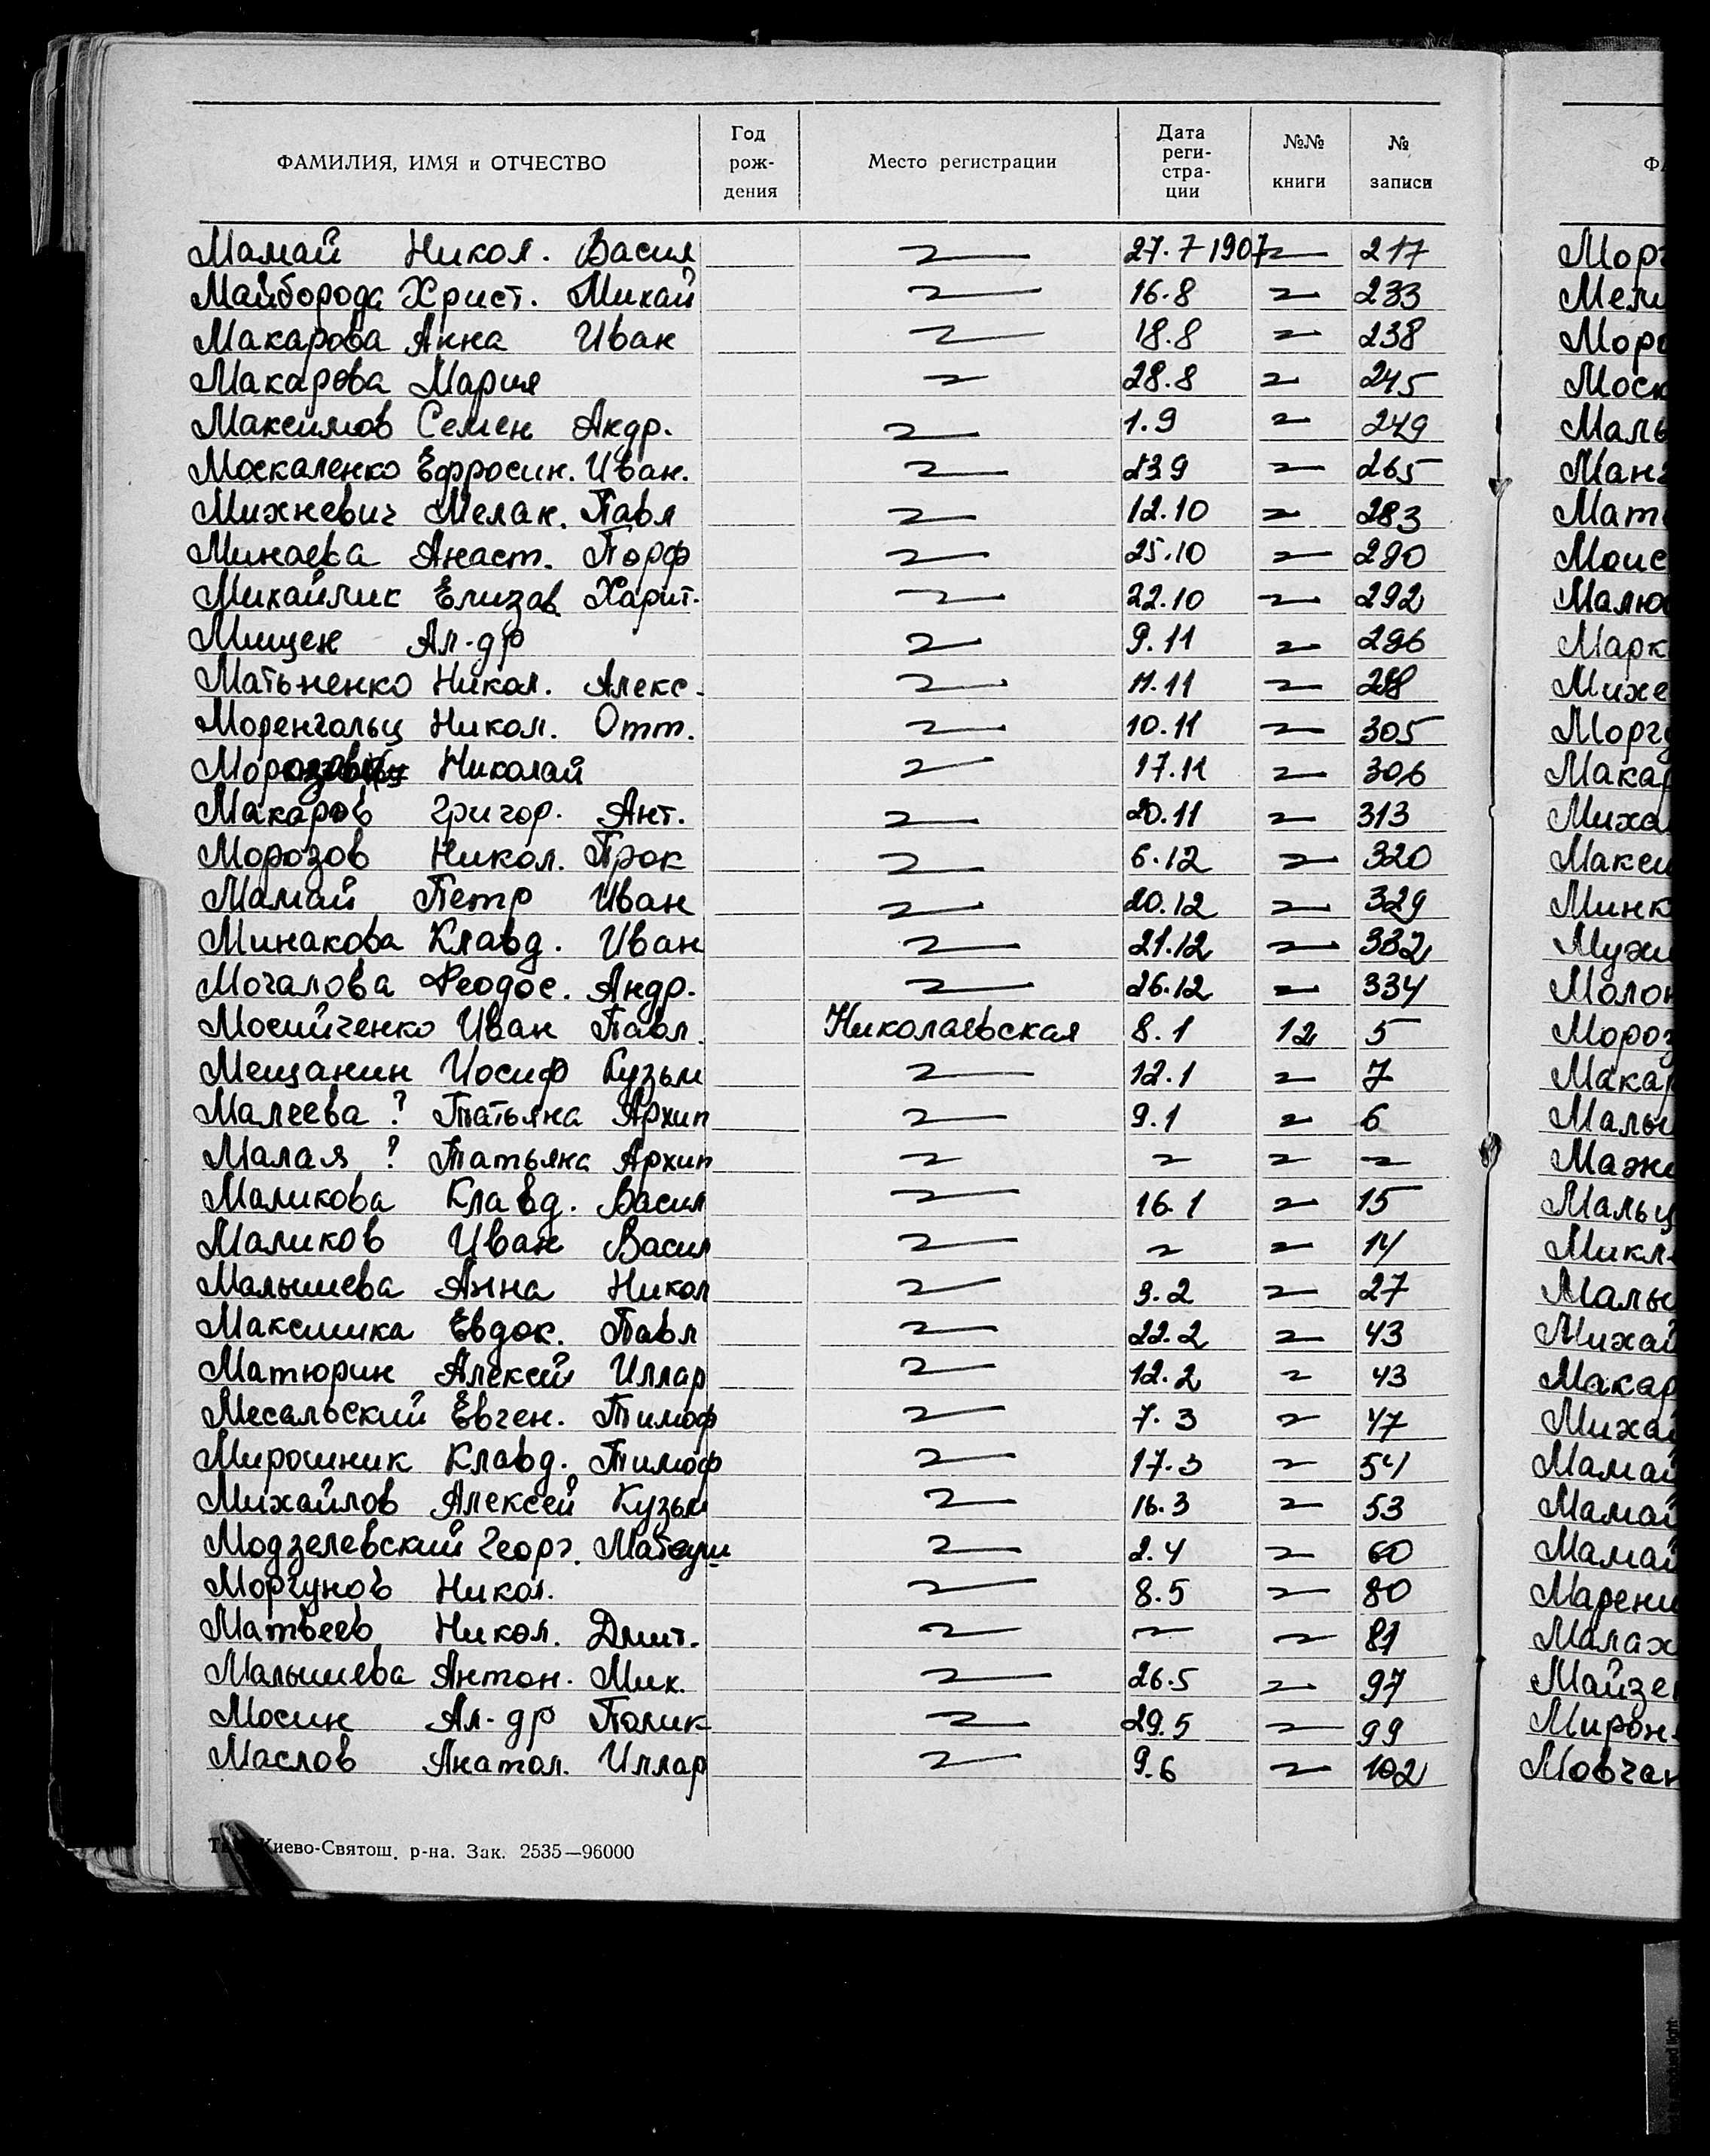 ФАМИЛИЯ, ИМЯ и ОТЧЕСТВО Год рож-дения Место регистрации Дата реги-стра-ции №№ книги № записи
Мамай Никол. Васил 27.7 1907 217
Майборода Христ. Михай 16.8 233
Макарова Анна Иван 18.8 238
Макарова Мария 28.8 245
Максимов Семен Андр. 1.9 249
Москаленко Ефросин. Иван. 23.9 265
Михневич Мелан. Павл 12.10 283
Минаева Анаст. Порф 25.10 290
Михайлик Елизав Харит. 22.10 292
Мищен Ал-др 9.11 296
Матьненко Никол. Алекс. 11.11
Моренгольц Никол. Отт. 10.11 305
Николай 17.11 306
Макаров Григор. Ант. 20.11 313
Морозов Никол. Прок 6.12 320
Мамай Петр Иван 20.12 329
Минакова Клавд. Иван 21.12 332
Мочалова Феодос. Андр. 26.12 334
Мосийченко Иван Павл. Николаевская 8.1 12 5
Мещанин Иосиф Кузьм 12.1 7
Малеева ? Татьяна Архип 9.1 6
Малая ? Татьяна Архип
Маликова Клавд. Васил 16.1 15
Маликов Иван Васил 14
Малышева Анна Никол 3.2 27
Максимка Евдок. Павл 22.2 43
Матюрин Алексей Иллар 12.2 43
Месальский Евген. Тимоф 7.3 47
Мирошник Клавд. Тимоф 17.3 54
Михайлов Алексей Кузьм 16.3 53
Модзелевский Георг. Матеуш 2.4 60
Моргунов Никол. 8.5 80
Матвеев Никол. Дмит. 81
Малышева Антон. Мих. 26.5 97
Мосин Ал-др Полик 29.5 99
Маслов Анатол. Иллар 9.6 102
Киево-Святош. р-на. Зак. 2535—96000